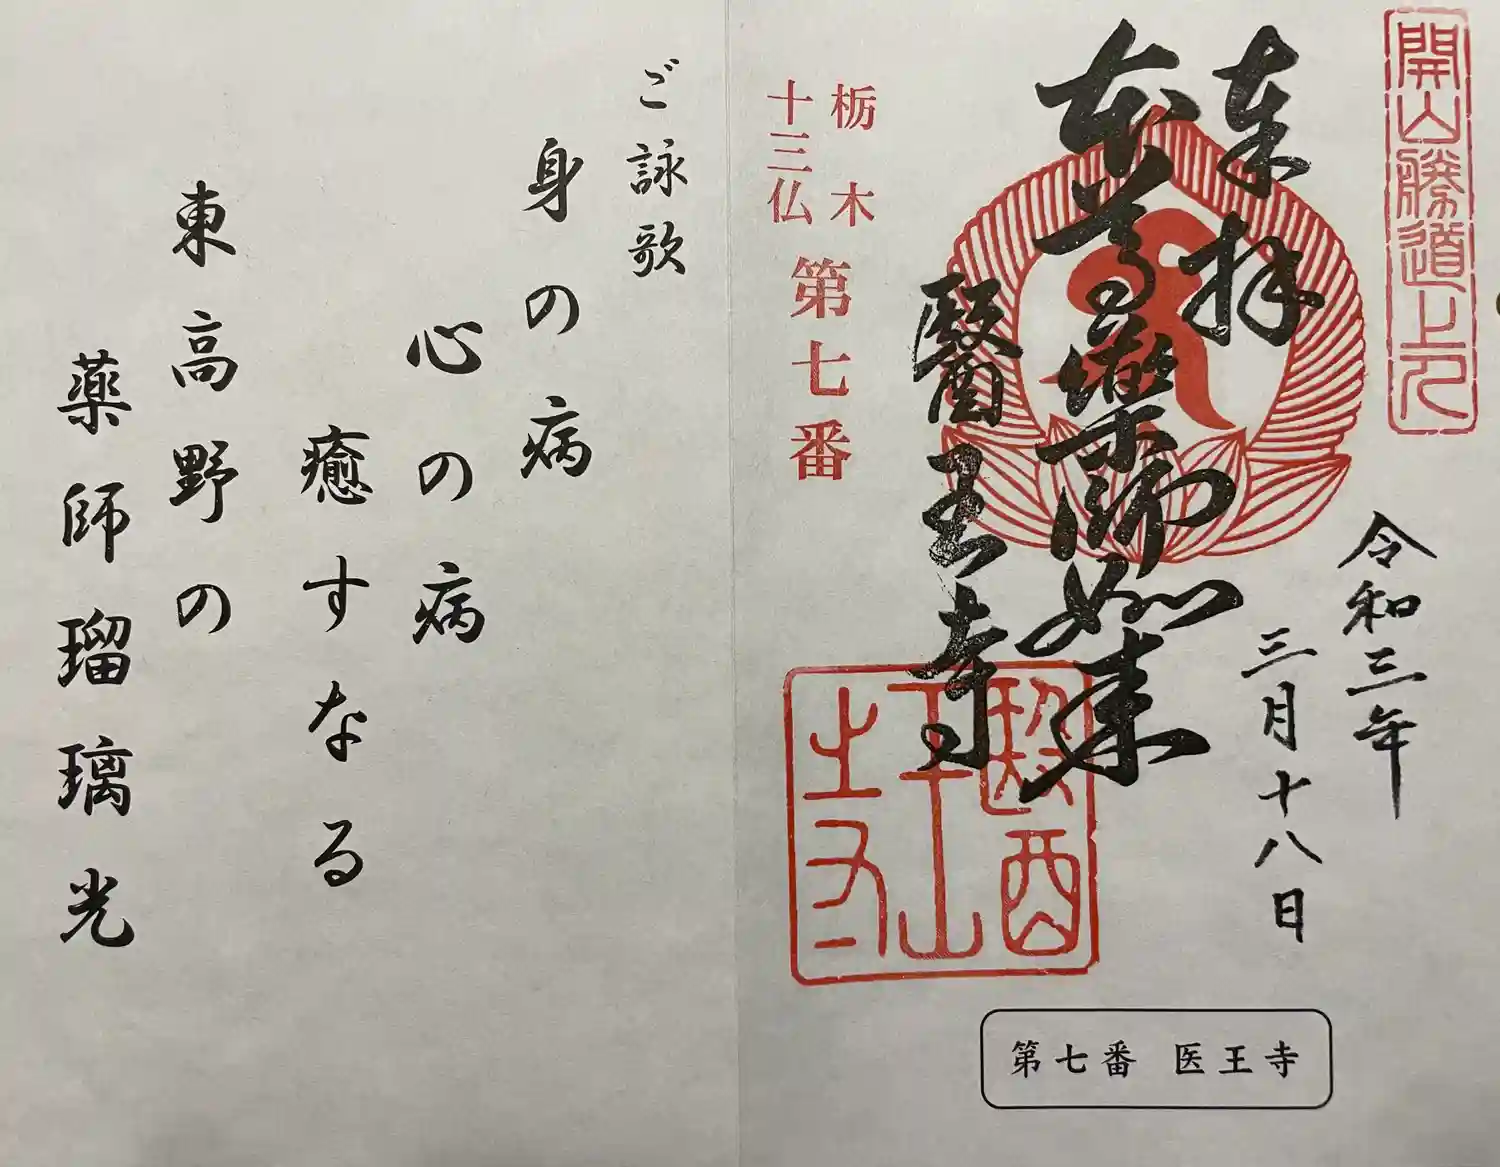 開山勝道上人
令和三年
三月十八日
来拝
本尊薬師如来
醫王寺
醫王山之印
栃木
十三仏
第七番
第七番 医王寺
ご詠歌
身の病
心の病
癒すなる
東高野の
薬師瑠璃光